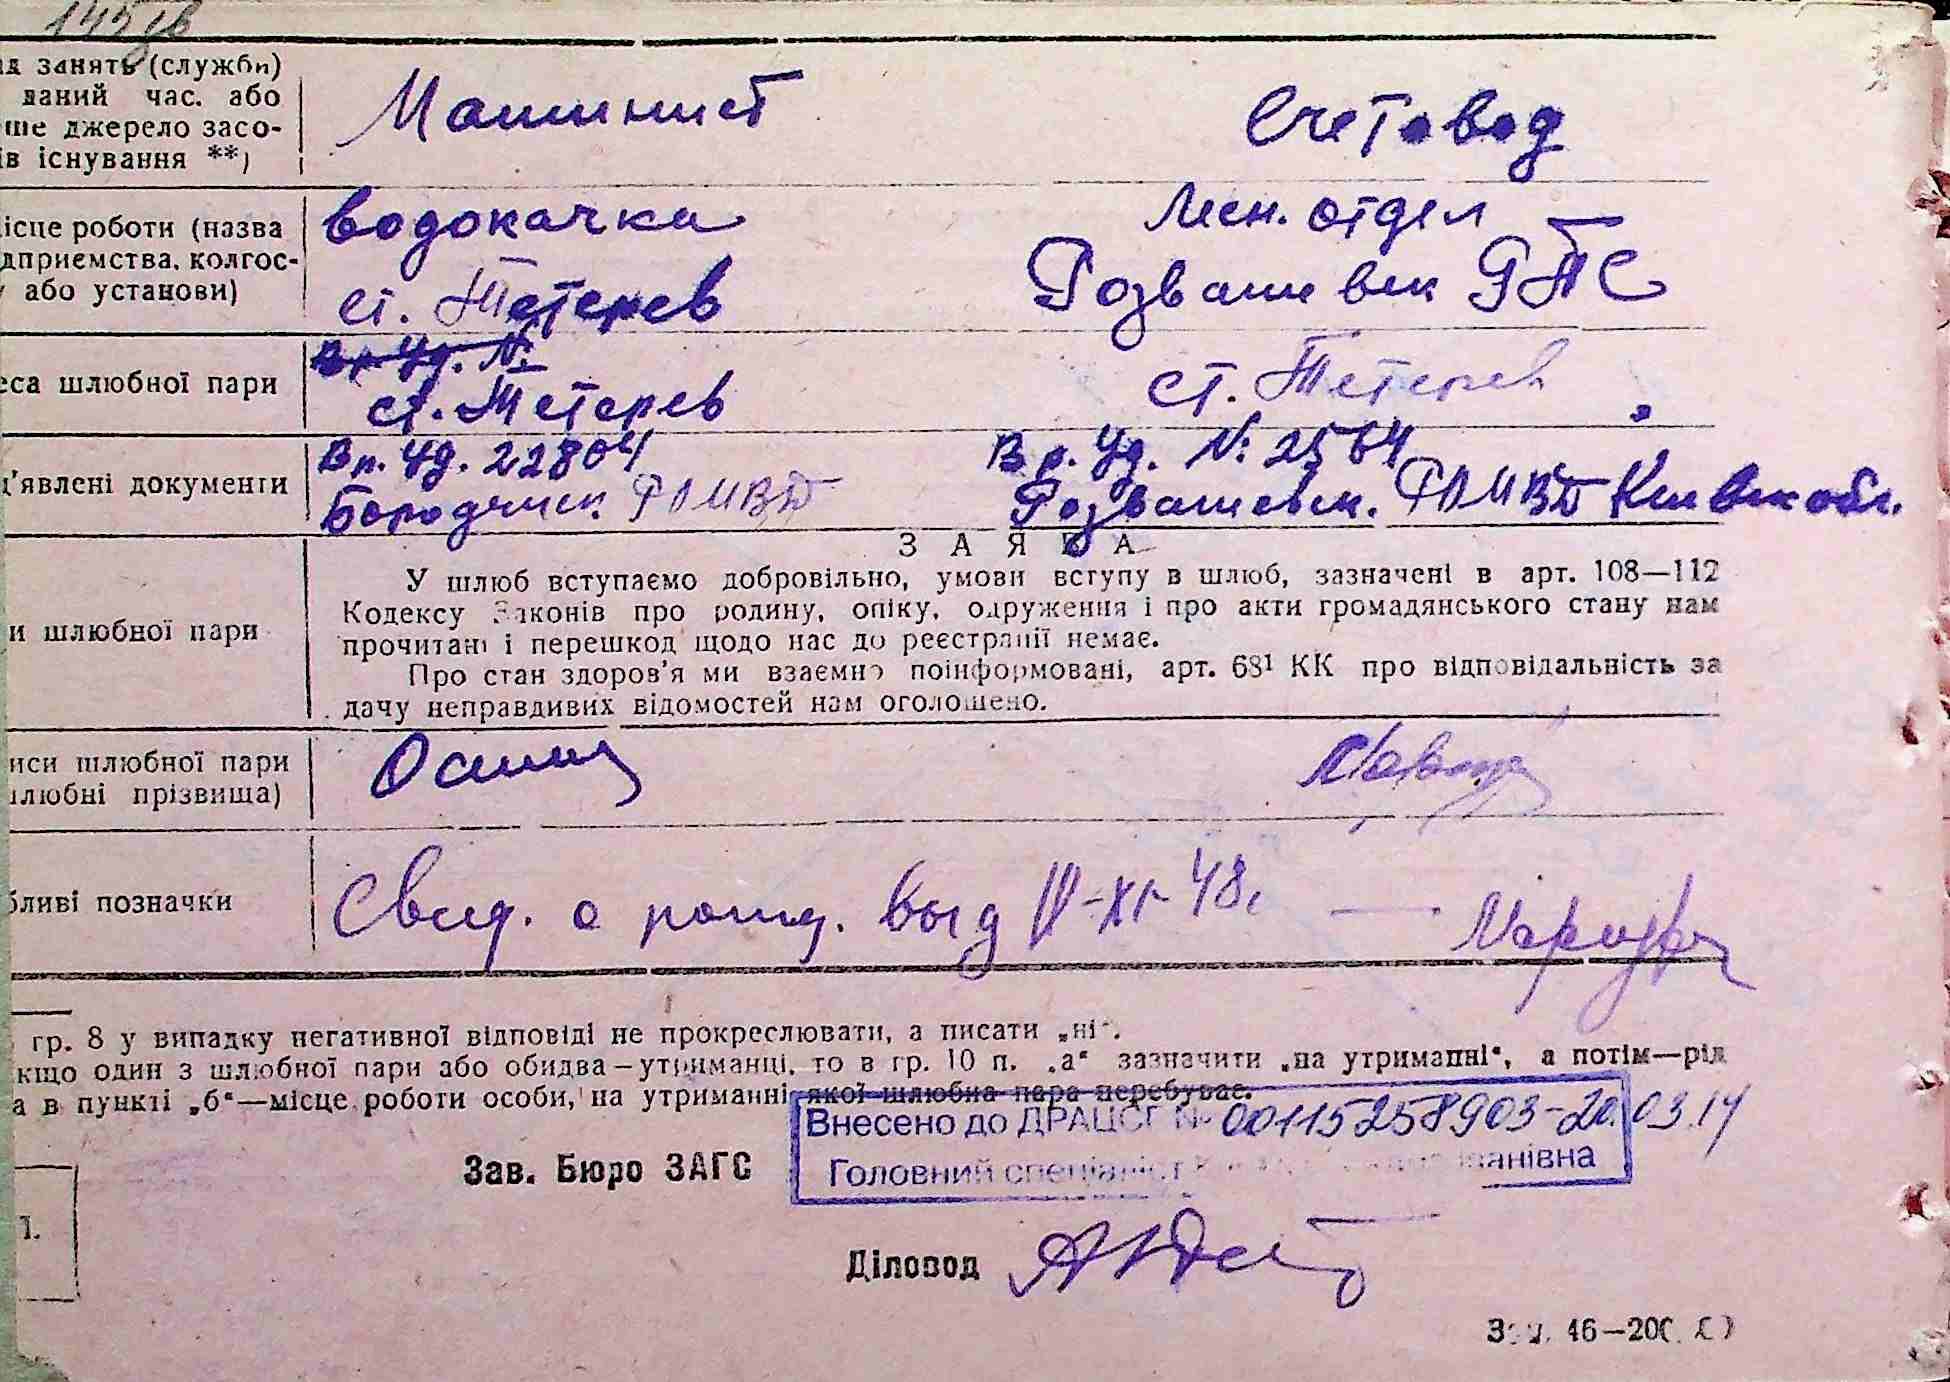 занять (служби) Машинист Счетовод
даний час. або
ше джерело засо-
ів існування **)
ісце роботи (назва водокачка Лесн. отдел
дприємства, колгос- ст. Тетерев Розвашевск РТС
у або установи)
Вр. Уд. №
еса шлюбної пари ст. Тетерев ст. Тетерев
Вр. Уд. 22804 Вр. Уд. №: 2564
'явлені документи Бородянск. РОМВД Розвашевск. РОМВД Киевск обл.
ЗАЯВА
У шлюб вступаємо добровільно, умови вступу в шлюб, зазначені в арт. 108—112
Кодексу Законів про родину, опіку, одруження і про акти громадянського стану нам
и шлюбної пари
прочитані і перешкод щодо нас до реєстрації немає.
Про стан здоров'я ми взаємно поінформовані, арт. 68¹ КК про відповідальність за
дачу неправдивих відомостей нам оголошено.
иси шлюбної пари
любні прізвища)
бливі позначки Свид. о рожд. выд IV-XI-48г
гр. 8 у випадку негативної відповіді не прокреслювати, а писати „ні“.
кщо один з шлюбної пари або обидва—утриманці, то в гр. 10 п. „а“ зазначити „на утриманні“, а потім—рід
а в пункті „б“—місце роботи особи, на утриманні якої шлюбна пара перебуває.
Внесено до ДРАЦСГ № 00115258903-20.03.14
Зав. Бюро ЗАГС Головний спеціаліст
Діловод